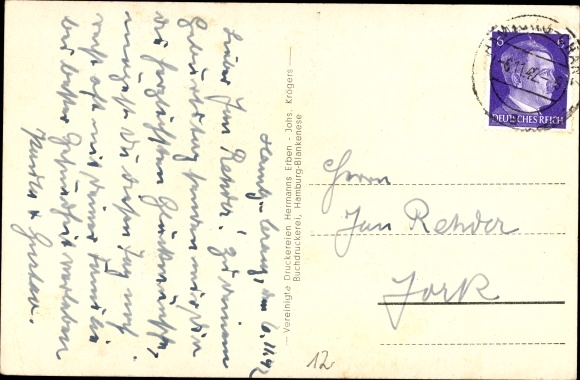 Hambg-Cranz, den 6.11.42
Lieber Jan Rehder! Zu deinem
Geburtstag senden wir dir
die herzlichsten Glückwünsche,
mögest Du diesen Tag noch
recht oft mit deiner Familie
bei bester Gesundheit verleben
Gustav.
Vereinigte Druckereien Hermanns Erben - Johs. Krögers
Buchdruckerei, Hamburg-Blankenese
6
DEUTSCHES REICH
6.11.42
Herrn
Jan Rehder
Jork
12